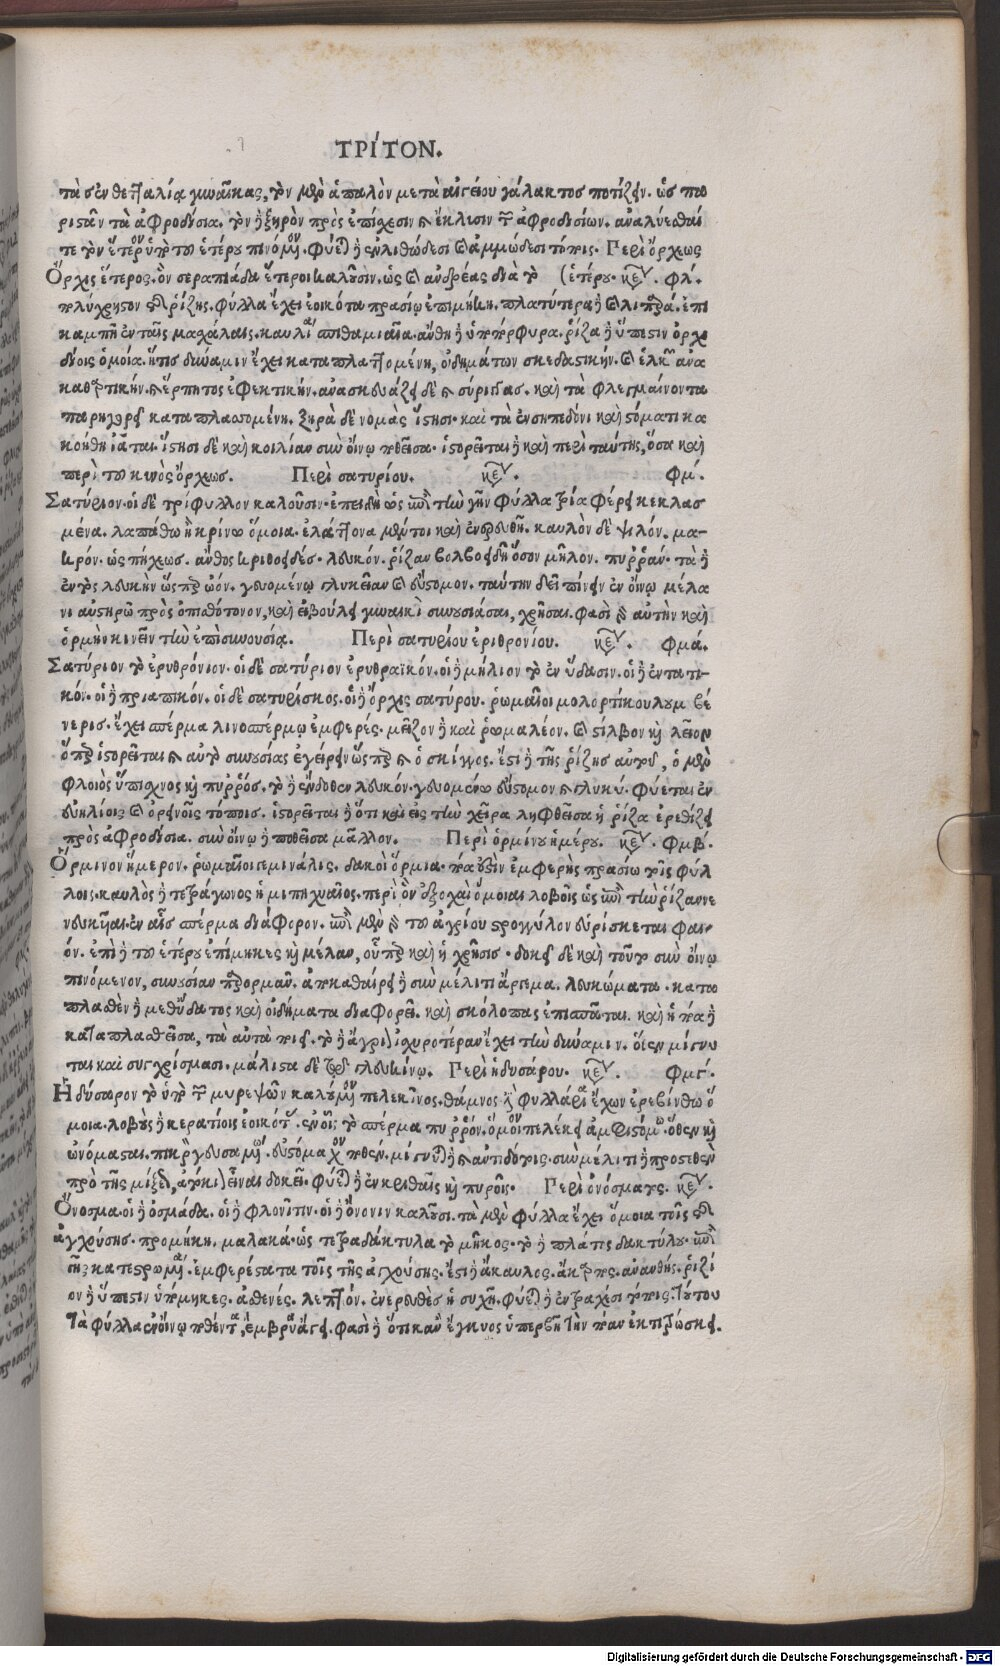 ΤΡΊΤΟΝ.
τὰς ἐν θετταλίᾳ γυναῖκας, τὸν μὲν ἁπαλὸν μετὰ αἰγείου γάλακτος ποτίζειν. ὡς πα
ριστᾶν τὰ ἀφροδίσια. τὸν ἢ ξηρὸν πρὸς ἐπίσχεσιν καὶ ἔκλισιν τῶν ἀφροδισίων. ἀναλύεσθαί
τε τὸν ἕτερον ὑπὸ τοῦ ἑτέρου πινόμενον. φύεται ἢ ἐν λιθώδεσι καὶ ἀμμώδεσι τόποις. Περὶ ὄρχεως
Ὄρχις ἕτερος. ὃν σεραπιάδα ἕτεροι καλοῦσιν. ὡς καὶ ἀνδρέας διὰ τὸ (ἑτέρου. κεφ. φλ.
πολύχρηστον τῆς ῥίζης. φύλλα ἔχει ἐοικότα πρασίῳ ἐπιμήκη. πλατύτερα ἢ καὶ λιπαρά. ἐπι
καμπῆ ἐν ταῖς μασχάλαις. καυλία σπιθαμιαῖα. ἄνθη ἢ ὑποπόρφυρα. ῥίζα ἢ ὕπεστιν ὀρχ
δίοις ὁμοία. ἥτις δύναμιν ἔχει καταπλαττομένη, οἰδημάτων σκεδαστικήν. καὶ ἑλκῶν ἀνα
καθαρτικήν. καὶ ἕρπητος ἐφεκτικήν. ἀνασκευάζει δὲ καὶ σύριγγας. καὶ τὰ φλεγμαίνοντα
παρηγορεῖ καταπλασσομένη. ξηρὰ δὲ νομὰς ἵστησι. καὶ τὰ ἐν σηπεδόνι καὶ στόματι κα
κοήθη ἰᾶται. ἵστησι δὲ καὶ κοιλίαν σὺν οἴνῳ ποθεῖσα. ἱστορεῖται ἢ καὶ περὶ ταύτης, ὅσα καὶ
περὶ τοῦ κυνὸς ὄρχεως. Περὶ σατυρίου. κεφ. φμ.
Σατύριον. οἱ δὲ τρίφυλλον καλοῦσιν. ἐπειδὴ ὡς ἐπὶ τὴν γῆν φύλλα τρία φέρει κεκλασ
μένα. λαπάθῳ ἢ κρίνῳ ὅμοια. ἐλάττονα μέντοι καὶ ἐνερευθῆ. καυλὸν δὲ ψιλόν. μα-
κρόν. ὡς πήχεως. ἄνθος κρινοειδές. λευκόν. ῥίζαν βολβοειδῆ ὅσον μῆλον. πυρράν. τὰ ἢ
ἐντὸς λευκὴν ὥσπερ ὠόν. γευομένῳ γλυκεῖαν καὶ εὔστομον. ταύτην δεῖ πίνειν ἐν οἴνῳ μέλα
νι αὐστηρῷ πρὸς ὀπισθότονον, καὶ εἰ βούλει γυναικὶ συνουσιάσαι, χρῆσαι. φασὶ γὰρ αὐτὴν καὶ
ὁρμὴν κινεῖν τὴν ἐπὶ συνουσία. Περὶ σατυρίου ἐριθρονίου. κεφ. φμά.
Σατύριον τὸ ἐρυθρόνιον. οἱ δὲ σατύριον ἐρυθραϊκόν. οἱ ἢ μήλιον τὸ ἐν ὕδασιν. οἱ ἢ ἐντατι-
κόν. οἱ ἢ πριαπικόν. οἱ δὲ σατυρίσκος. οἱ ἢ ὄρχις σατύρου. ῥωμαῖοι μολορτίκουλουμ βέ
νερισ. ἔχει σπέρμα λινοσπέρμῳ ἐμφερές. μεῖζον ἢ καὶ ῥωμαλέον. καὶ στίλβον καὶ λεῖον
ὅπερ ἱστορεῖται καὶ αὐτὸ συνουσίας ἐγείρειν ὥσπερ καὶ ὁ σκίγκος. ἔστι ἢ τῆς ῥίζης αὐτοῦ, ὁ μὲν
φλοιὸς ὕπισχνος καὶ πυρρός. τὸ ἢ ἔνδοθεν λευκόν. γευομένῳ εὔστομον καὶ γλυκύ. φύεται ἐν
εὐηλίοις καὶ ὀρεινοῖς τόποις. ἱστορεῖται ἢ ὅτι καὶ εἰς τὼ χεῖρα ληφθεῖσα ἡ ῥίζα ἐρεθίζει
πρὸς ἀφροδίσια. σὺν οἴνῳ ἢ ποθεῖσα μᾶλλον. Περὶ ὁρμίνου ἡμέρου. κεφ. φμβ.
Ὄρμινον ἥμερον. ῥωμαῖοι γεμινάλις. δακοὶ ὅρμια. πόα ἐστὶν ἐμφερὴς πρασίῳ τοῖς φύλ
λοις. καυλὸς ἢ τετράγωνος ἡμιπηχυαῖος. περὶ ὃν ἐξοχαὶ ὅμοιαι λοβοῖς ὡς ἐπὶ τὴν ῥίζαν νε
νευκυῖαι. ἐν αἷς σπέρμα διάφορον. ἐπὶ μὲν γὰρ τοῦ ἀγρίου στρογγύλον εὑρίσκεται φαι-
όν. ἐπὶ ἢ τοῦ ἑτέρου ἐπίμηκες καὶ μέλαν, οὗπερ καὶ ἡ χρῆσις. δοκεῖ δὲ καὶ τοῦτο σὺν οἴνῳ
πινόμενον, συνουσίαν παρορμᾶν. ἀποκαθαίρει ἢ σὺν μέλιτι ἄργεμα. λευκώματα. κατα
πλασθὲν ἢ μεθ' ὕδατος καὶ οἰδήματα διαφορεῖ. καὶ σκόλοπας ἐπισπᾶται. καὶ ἡ πόα ἢ
καταπλασθεῖσα, τὰ αὐτὰ ποιεῖ. τὸ ἢ ἄγριον ἰσχυροτέραν ἔχει τὴν δύναμιν. ὅθεν μίγνυ
ται καὶ συγχρίσμασι. μάλιστα δὲ τῷ γλευκίνῳ. Περὶ ἡδυσάρου. κεφ. φμγ.
Ἡδύσαρον τὸ ὑπὸ τῶν μυρεψῶν καλούμενον πελεκῖνος. θάμνος ἐστὶ φυλλάρια ἔχων ἐρεβίνθῳ ὅ
μοια. λοβοὺς ἢ κερατίοις ἐοικότας. ἐν οἷς τὸ σπέρμα πυρρόν. ὅμοιον πελέκει ἀμφιστόμῳ. ὅθεν καὶ
ὠνόμασται. πικρὸν γευσαμένῳ. εὐστόμαχον ποθέν. μίγνυται ἢ καὶ ἀντιδότοις. σὺν μέλιτι ἢ προστεθὲν
πρὸ τῆς μίξεως, ἀτόκιον εἶναι δοκεῖ. φύεται ἢ ἐν κριθαῖς καὶ πυροῖς. Περὶ ὀνόσματος. κεφ.
Ὄνοσμα. οἱ ἢ ὀσμάδα. οἱ ἢ φλονῖτιν. οἱ ἢ ὄνονιν καλοῦσι. τὰ μὲν φύλλα ἔχει ὅμοια τοῖς τῆς
ἀγχούσης. προμήκη. μαλακά. ὡς τετραδάκτυλα τὸ μῆκος. τὸ ἢ πλάτος δακτύλου. ἐπὶ
γῆς κατεστρωμένα. ἐμφερέστατα τοῖς τῆς ἀγχούσης. ἔστι ἢ ἄκαυλος. ἄκαρπος. ἀνανθής. ῥιζί
ον ἢ ὕπεστιν ὑπόμηκες. ἀσθενές. λεπτόν. ἐνερευθὲς ἡσυχῆ. φύεται ἢ ἐν τραχέσι τόποις. τούτου
τὰ φύλλα ἐν οἴνῳ ποθέντα, ἔμβρυα ἄγει. φασὶ ἢ ὅτι κἂν ἔγκυος ὑπερβῇ τὴν πόαν ἐκτιτρώσκει.
Digitalisierung gefördert durch die Deutsche Forschungsgemeinschaft - DFG